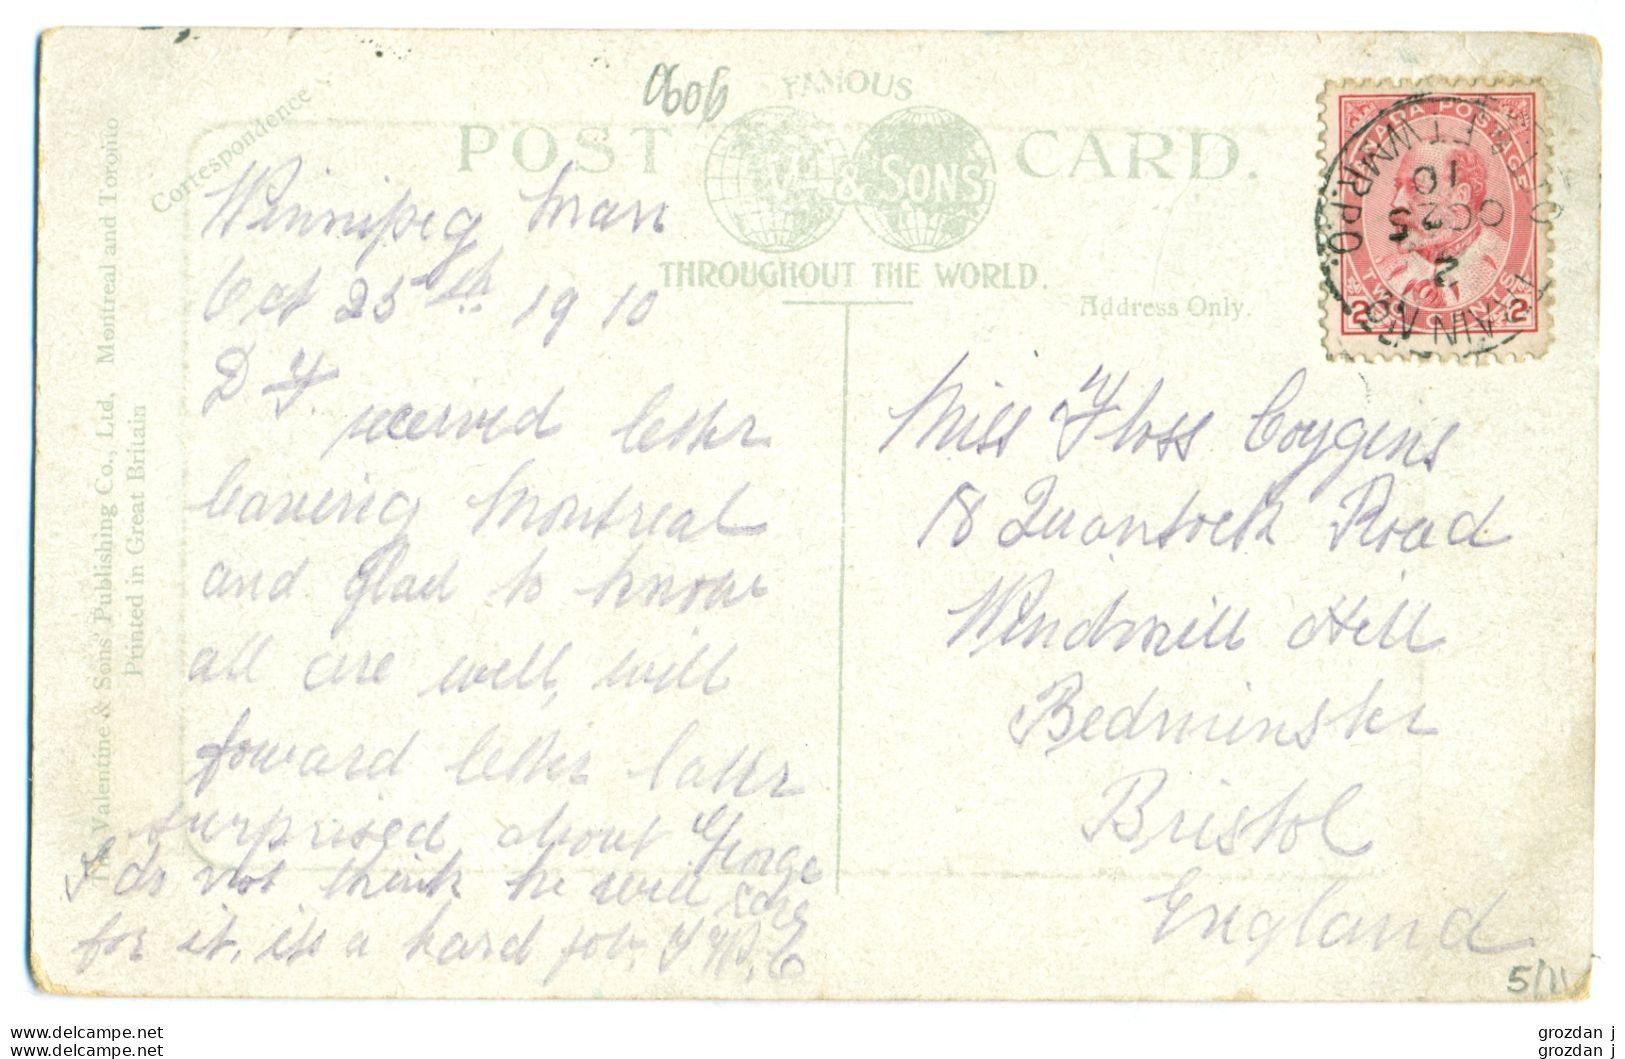 0606
FAMOUS
POST CARD.
& SONS
THROUGHOUT THE WORLD.
Correspondence
Address Only.
Valentine & Sons' Publishing Co., Ltd. Montreal and Toronto
Printed in Great Britain
Winnipeg Man
Oct 25th 1910
D. F.
received letter
leaving Montreal
and glad to know
all are well, will
forward letter later
surprised about George
I do not think he will care
for it, its a hard job.
Miss Floss Coggens
18 Quantock Road
Windmill Hill
Bedminster
Bristol
England
CANADA POSTAGE
2 TWO CENTS 2
10
OC 25
2
R.P.O.
5/IV
www.delcampe.net
www.delcampe.net
grozdan j
grozdan j